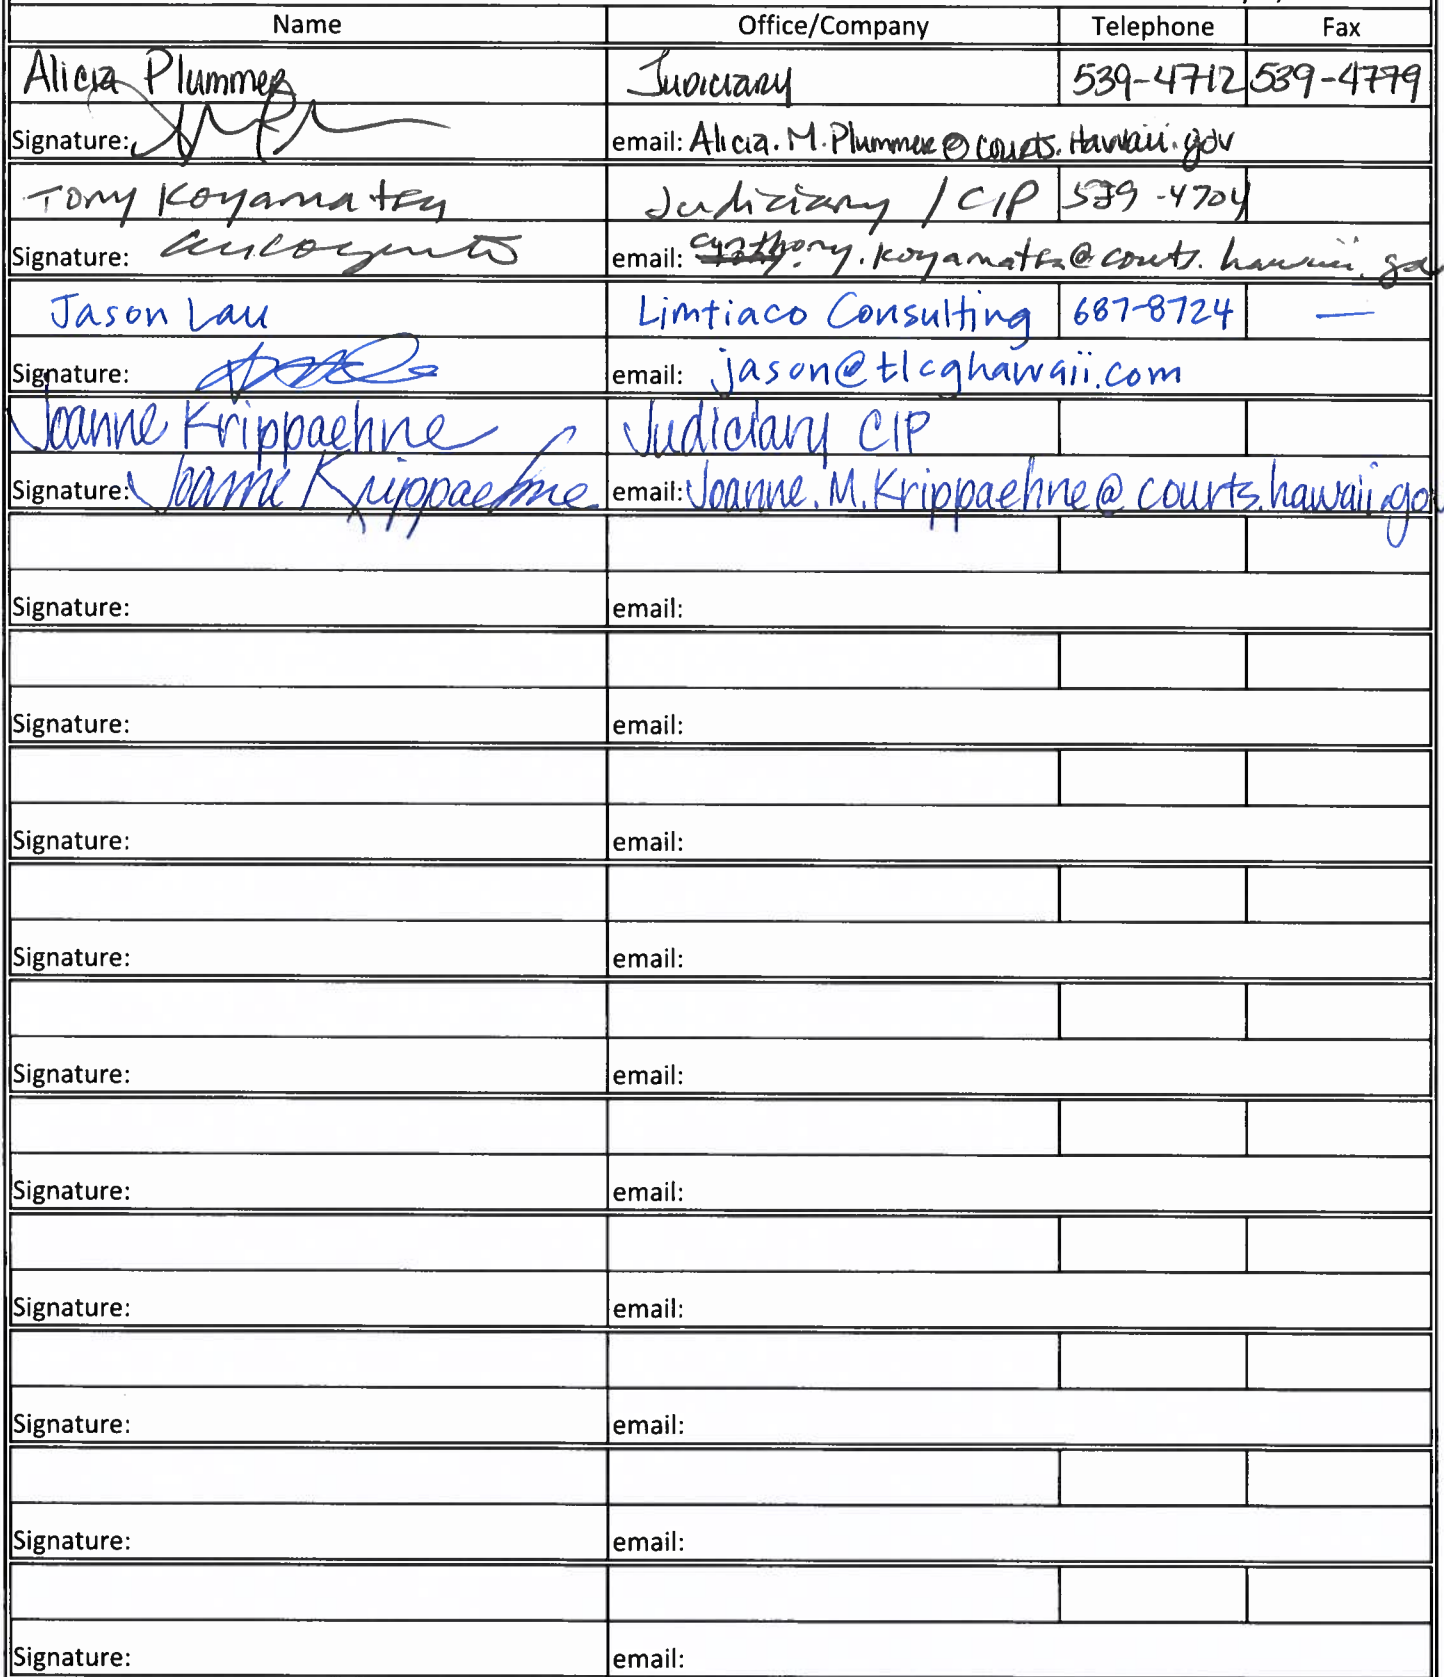 Name Office/Company Telephone Fax
Alicia Plummer Judiciary 539-4712 539-4779
Signature: email: Alicia.M.Plummer@courts.Hawaii.gov
Tony Koyamatsu Judiciary / CIP 539-4704
Signature: email: y.koyamatsu@courts.hawaii.go
Jason Lau Limtiaco Consulting 687-8724 —
Signature: email: jason@tlcghawaii.com
Joanne Krippaehne Judiciary CIP
Signature: Joanne Krippaehne email: Joanne.M.Krippaehne@courts.hawaii.gov
Signature: email:
Signature: email:
Signature: email:
Signature: email:
Signature: email:
Signature: email:
Signature: email:
Signature: email:
Signature: email:
Signature: email: